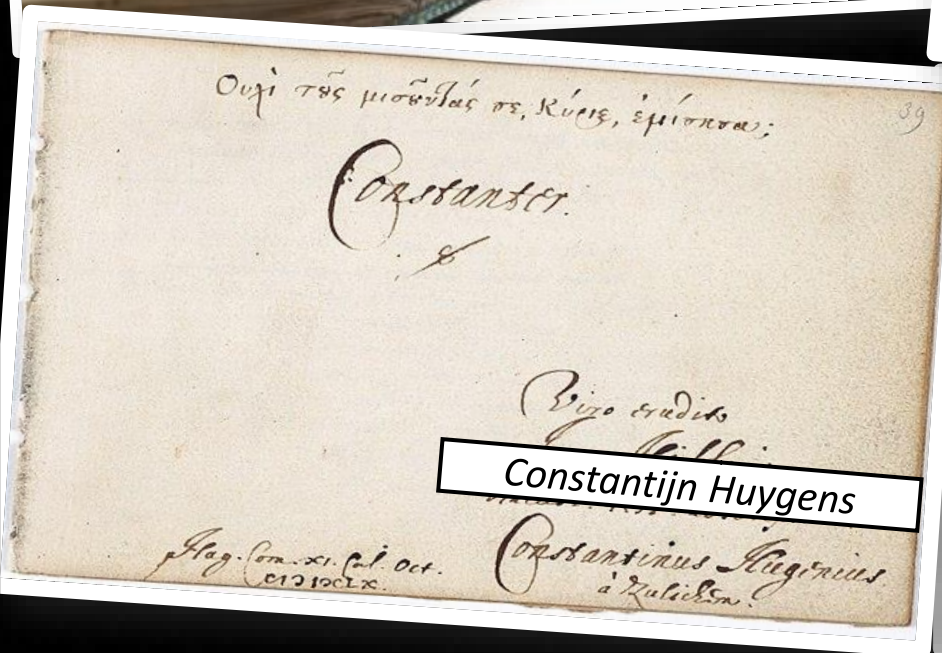 Ουχὶ τοὺς μισοῦντάς σε, Κύριε, ἐμίσησα;
39
Constanter.
Viro erudito
Constantijn Huygens
Constantinus Hugenius
Hag. Com. XI. Cal. Oct.
à Zulichem.